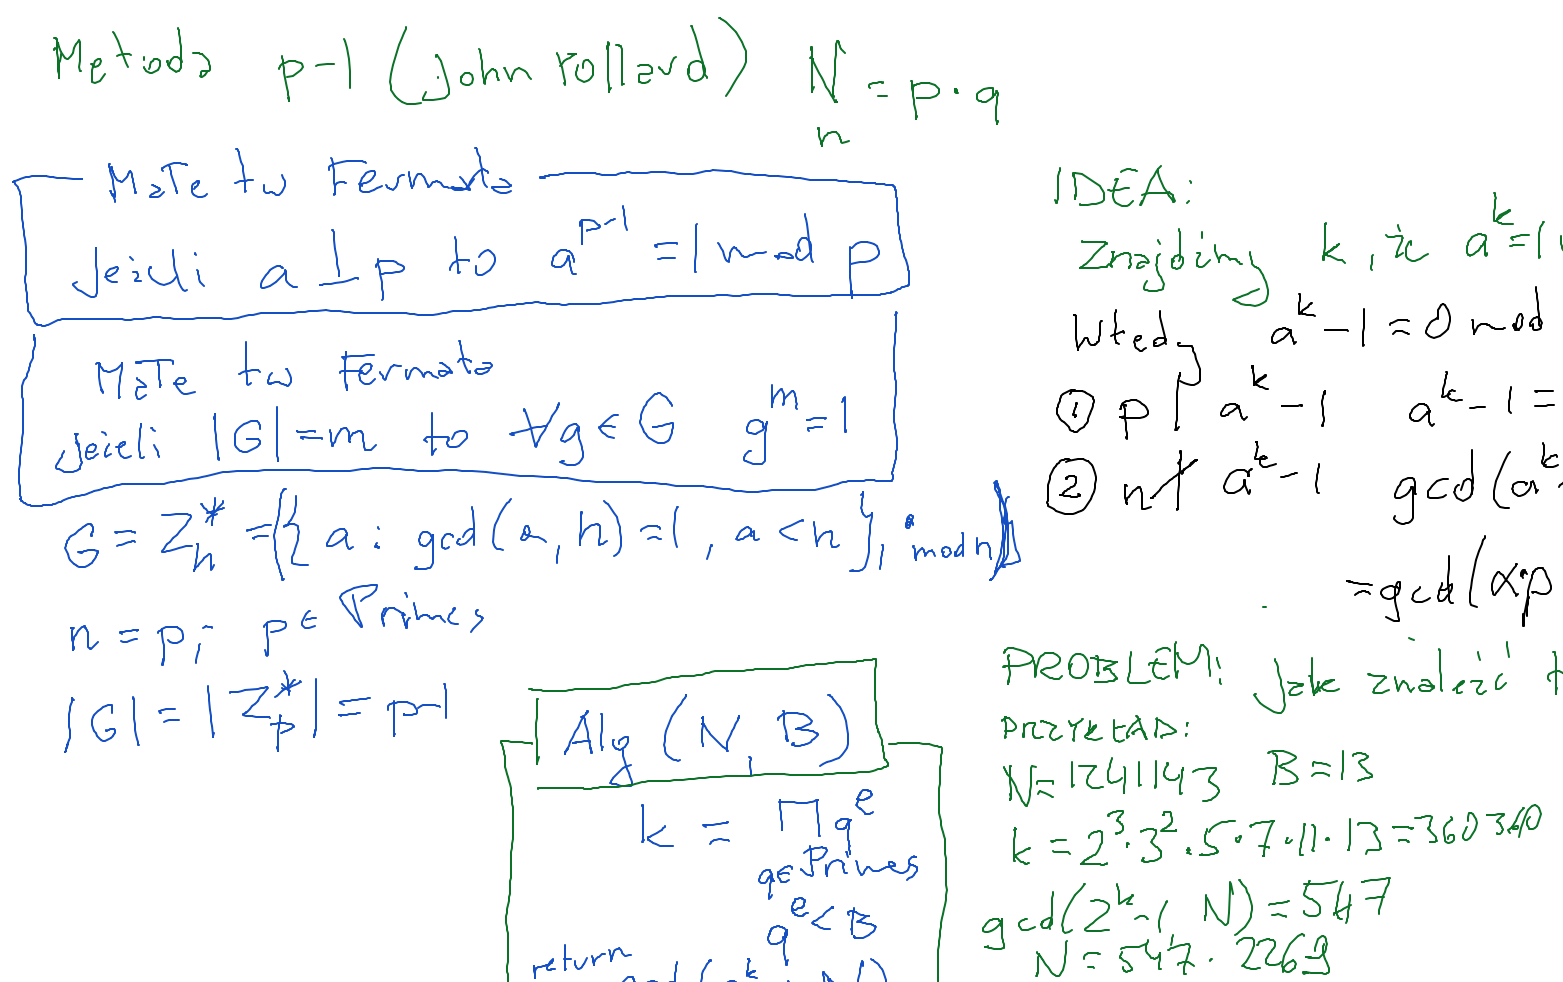 Metoda p-1 (John Pollard) N = p · q
n
Małe tw Fermata
Jeżeli a ⊥ p to a^{p-1} = 1 mod p
Małe tw Fermata
Jeżeli |G| = m to ∀g ∈ G g^m = 1
G = Z_n^* = ({ a : gcd(a, n) = 1, a < n }, · mod n)
n = p; p ∈ Primes
|G| = |Z_p^*| = p-1
Alg (N, B)
k = ∏ q^e
q ∈ Primes
q^e < B
return
gcd(a^k - 1, N)
IDEA:
Znajdźmy k, że a^k = 1
Wtedy a^k - 1 = 0 mod
① p | a^k - 1 a^k - 1 =
② n ∤ a^k - 1 gcd(a^k
= gcd(αp
PROBLEM: Jak znaleźć
PRZYKŁAD:
N = 1241143 B = 13
k = 2^3 · 3^2 · 5 · 7 · 11 · 13 = 360360
gcd(2^k - 1, N) = 547
N = 547 · 2269